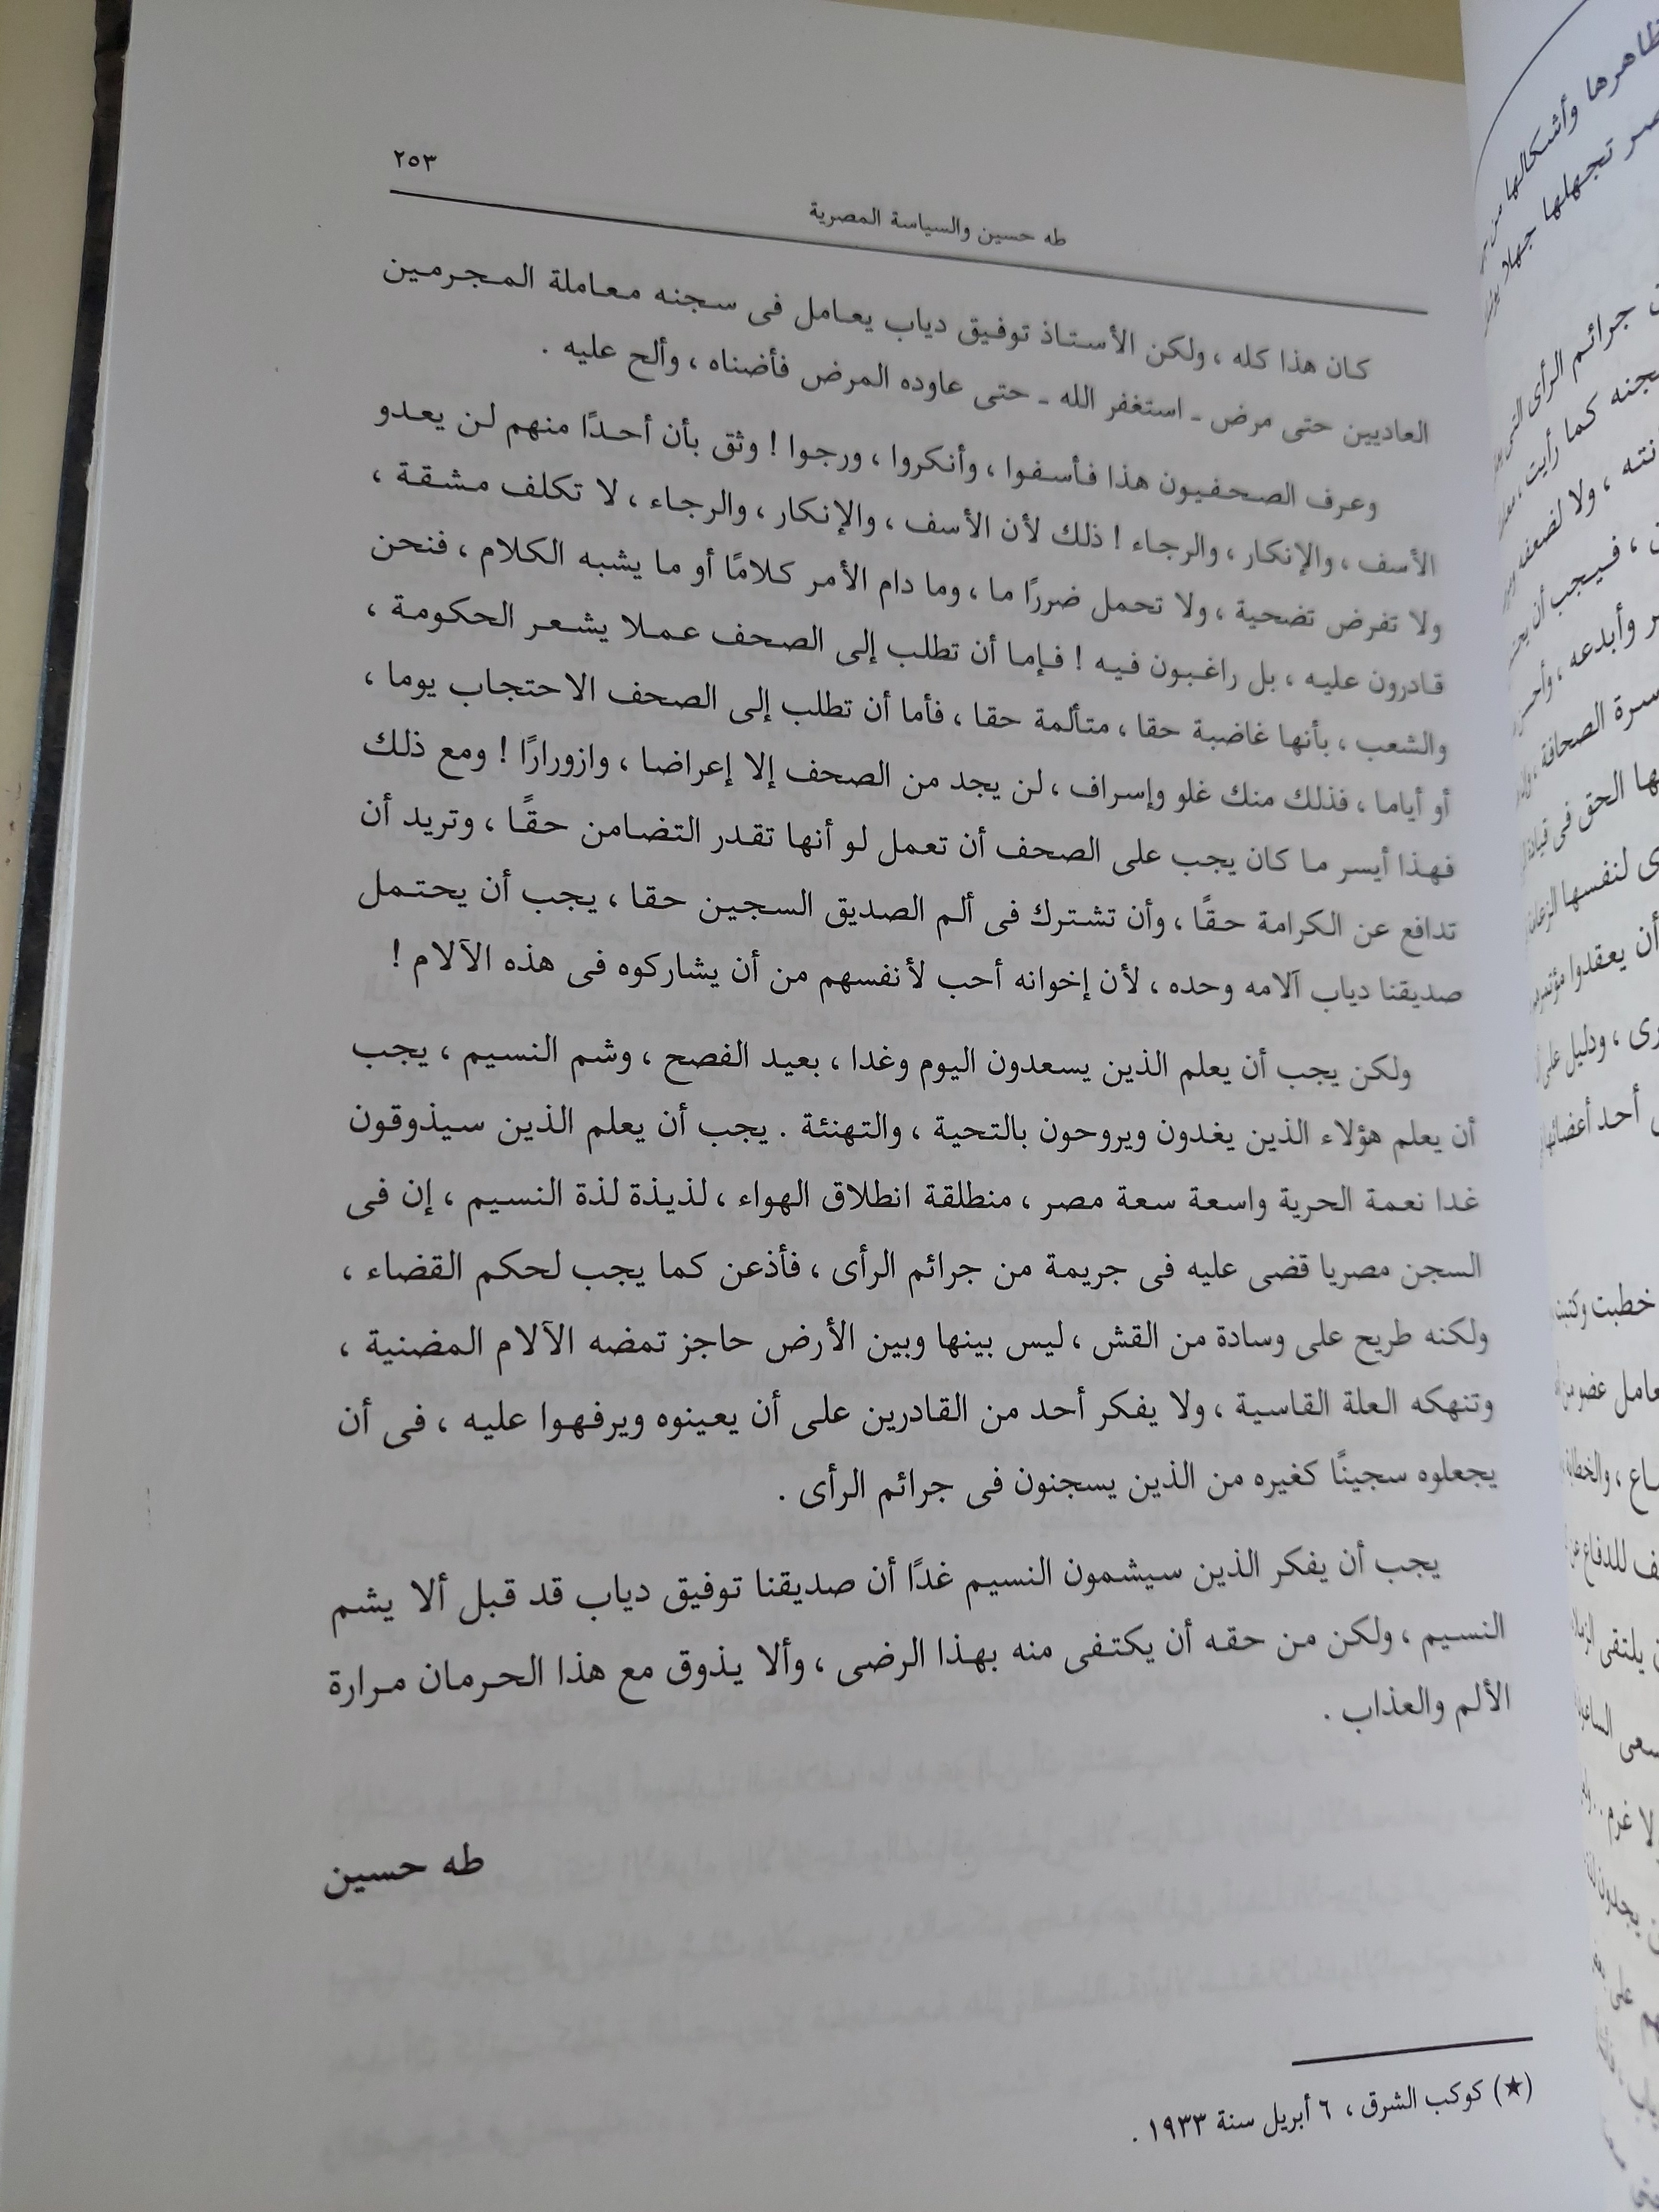 ٢٥٣
طه حسين والسياسة المصرية
كان هذا كله ، ولكن الأستاذ توفيق دياب يعامل فى سجنه معاملة المجرمين
العاديين حتى مرض ـ استغفر الله ـ حتى عاوده المرض فأضناه ، وألح عليه .
وعرف الصحفيون هذا فأسفوا ، وأنكروا ، ورجوا ! وثق بأن أحدًا منهم لن يعدو
الأسف ، والإنكار ، والرجاء ! ذلك لأن الأسف ، والإنكار ، والرجاء ، لا تكلف مشقة ،
ولا تفرض تضحية ، ولا تحمل ضررًا ما ، وما دام الأمر كلامًا أو ما يشبه الكلام ، فنحن
قادرون عليه ، بل راغبون فيه ! فإما أن تطلب إلى الصحف عملا يشعر الحكومة ،
والشعب ، بأنها غاضبة حقا ، متألمة حقا ، فأما أن تطلب إلى الصحف الاحتجاب يوما ،
أو أياما ، فذلك منك غلو وإسراف ، لن يجد من الصحف إلا إعراضا ، وازورارًا ! ومع ذلك
فهذا أيسر ما كان يجب على الصحف أن تعمل لو أنها تقدر التضامن حقًا ، وتريد أن
تدافع عن الكرامة حقًا ، وأن تشترك فى ألم الصديق السجين حقا ، يجب أن يحتمل
صديقنا دياب آلامه وحده ، لأن إخوانه أحب لأنفسهم من أن يشاركوه فى هذه الآلام !
ولكن يجب أن يعلم الذين يسعدون اليوم وغدا ، بعيد الفصح ، وشم النسيم ، يجب
أن يعلم هؤلاء الذين يغدون ويروحون بالتحية ، والتهنئة . يجب أن يعلم الذين سيذوقون
غدا نعمة الحرية واسعة سعة مصر ، منطلقة انطلاق الهواء ، لذيذة لذة النسيم ، إن فى
السجن مصريا قضى عليه فى جريمة من جرائم الرأى ، فأذعن كما يجب لحكم القضاء ،
ولكنه طريح على وسادة من القش ، ليس بينها وبين الأرض حاجز تمضه الآلام المضنية ،
وتنهكه العلة القاسية ، ولا يفكر أحد من القادرين على أن يعينوه ويرفهوا عليه ، فى أن
يجعلوه سجينًا كغيره من الذين يسجنون فى جرائم الرأى .
يجب أن يفكر الذين سيشمون النسيم غدًا أن صديقنا توفيق دياب قد قبل ألا يشم
النسيم ، ولكن من حقه أن يكتفى منه بهذا الرضى ، وألا يذوق مع هذا الحرمان مرارة
الألم والعذاب .
طه حسين
(★) كوكب الشرق ، ٦ أبريل سنة ١٩٣٣ .